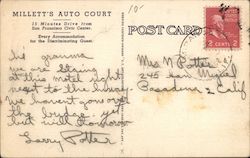 MILLETT'S AUTO COURT
15 Minutes Drive from
San Francisco Civic Center.
Every Accommodation
for the Discriminating Guest.
10¢
POST CARD
2 CENTS 2
hi gramma
we are staing
at this motel right
next to the
We havent gone over
the bridge yet
but will tomorrow
Larry Potter
Mrs N Potter
245 San Miguel
Pasadena 2 Calif